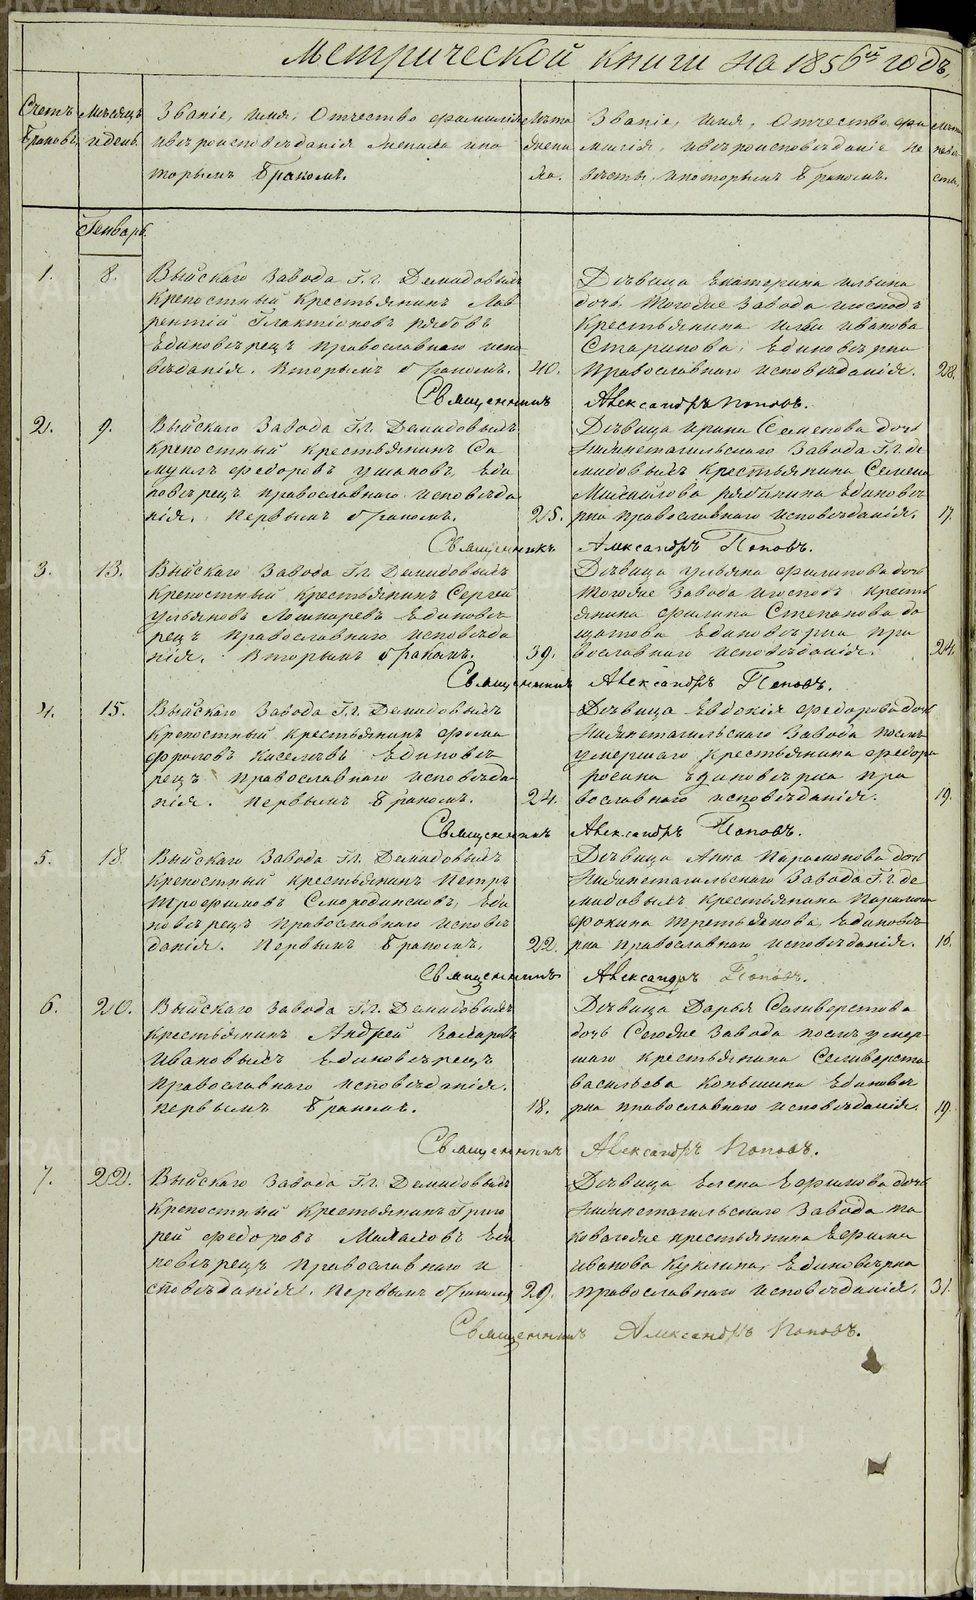 METRIKI.GASO-URAL.RU
Метрической книги на 1856й годъ,
Счетъ
Браковъ,
Мѣсяцъ
и день.
Званіе, имя, Отчество фамилія
и вѣроисповѣданія жениха и ко
торымъ бракомъ.
Лѣта
жени
ха.
Званіе, имя, Отчество, фа
милія, и вѣроисповѣданіе не
вѣсты, и которымъ бракомъ.
Лѣта
невѣ
сты,
Генварь.
1. 8.
Выйскаго Завода Гг. Демидовыхъ
крепостный крестьянинъ Лав
рентій Галактіоновъ Рябовъ
Единовѣрецъ православнаго испо
вѣданія. Вторымъ бракомъ. 40.
Дѣвица Екатерина Ильина
дочь тогоже Завода и господъ
крестьянина Ильи Иванова
Старикова, Единовѣрка
православнаго исповѣданія. 28.
Священникъ Александръ Поповъ.
2. 9.
Выйскаго Завода Гг. Демидовыхъ
крепостный крестьянинъ Са
муилъ Федоровъ Ушаковъ, Еди
новѣрецъ православнаго исповѣда
нія. Первымъ бракомъ. 25.
Дѣвица Ирина Семенова дочь
Нижнетагильскаго Завода Гг. Де
мидовыхъ крестьянина Семена
Михайлова Рябинина Единовѣ
рка православнаго исповѣданія. 17.
Священникъ Александръ Поповъ.
3. 13.
Выйскаго Завода Гг. Демидовыхъ
крепостный крестьянинъ Сергей
Ульяновъ Единовѣ
рецъ православнаго исповѣда
нія. Вторымъ бракомъ. 39.
Дѣвица Ульяна Филипова дочь
тогоже Завода и господъ кресть
янина Филипа Степанова
Единовѣрка пра
вославнаго исповѣданія. 24.
Священникъ Александръ Поповъ.
4. 15.
Выйскаго Завода Гг. Демидовыхъ
крепостный крестьянинъ Фома
Фроловъ Киселевъ Единовѣ
рецъ православнаго исповѣда
нія. Первымъ бракомъ. 24.
Дѣвица Евдокія Федорова дочь
Нижнетагильскаго Завода послѣ
умершаго крестьянина Федора
Единовѣрка пра
вославнаго исповѣданія. 19.
Священникъ Александръ Поповъ.
5. 18
Выйскаго Завода Гг. Демидовыхъ
крепостный крестьянинъ Петръ
Трофимовъ Смородинсковъ, Еди
новѣрецъ православнаго исповѣ
данія. Первымъ бракомъ, 22.
Дѣвица Анна Парамонова дочь
Нижнетагильскаго Завода Гг. Де
мидовыхъ крестьянина Парамона
Фокина Третьякова, Единовѣ
рка православнаго исповѣданія. 16.
Священникъ Александръ Поповъ.
6. 20.
Выйскаго Завода Гг. Демидовыхъ
крестьянинъ Андрей Захаровъ
Ивановыхъ Единовѣрецъ
православнаго исповѣданія.
первымъ бракомъ. 18.
Дѣвица Дарья Селиверстова
дочь Сегоже Завода послѣ умер
шаго крестьянина Селиверста
Васильева Коньшина Единовѣ
рка православнаго исповѣданія. 19.
Священникъ Александръ Поповъ.
7. 22.
Выйскаго Завода Гг. Демидовыхъ
крепостный крестьянинъ Григо
рей Федоровъ Еди
новѣрецъ православнаго и
сповѣданія. Первымъ бракомъ 29.
Дѣвица Елена Ефимова дочь
Нижнетагильскаго Завода та
ковагоже крестьянина Ефима
Иванова Куклина, Единовѣрка
православнаго исповѣданія, 31.
Священникъ Александръ Поповъ.
METRIKI.GASO-URAL.RU
METRIKI.GASO-URAL.RU